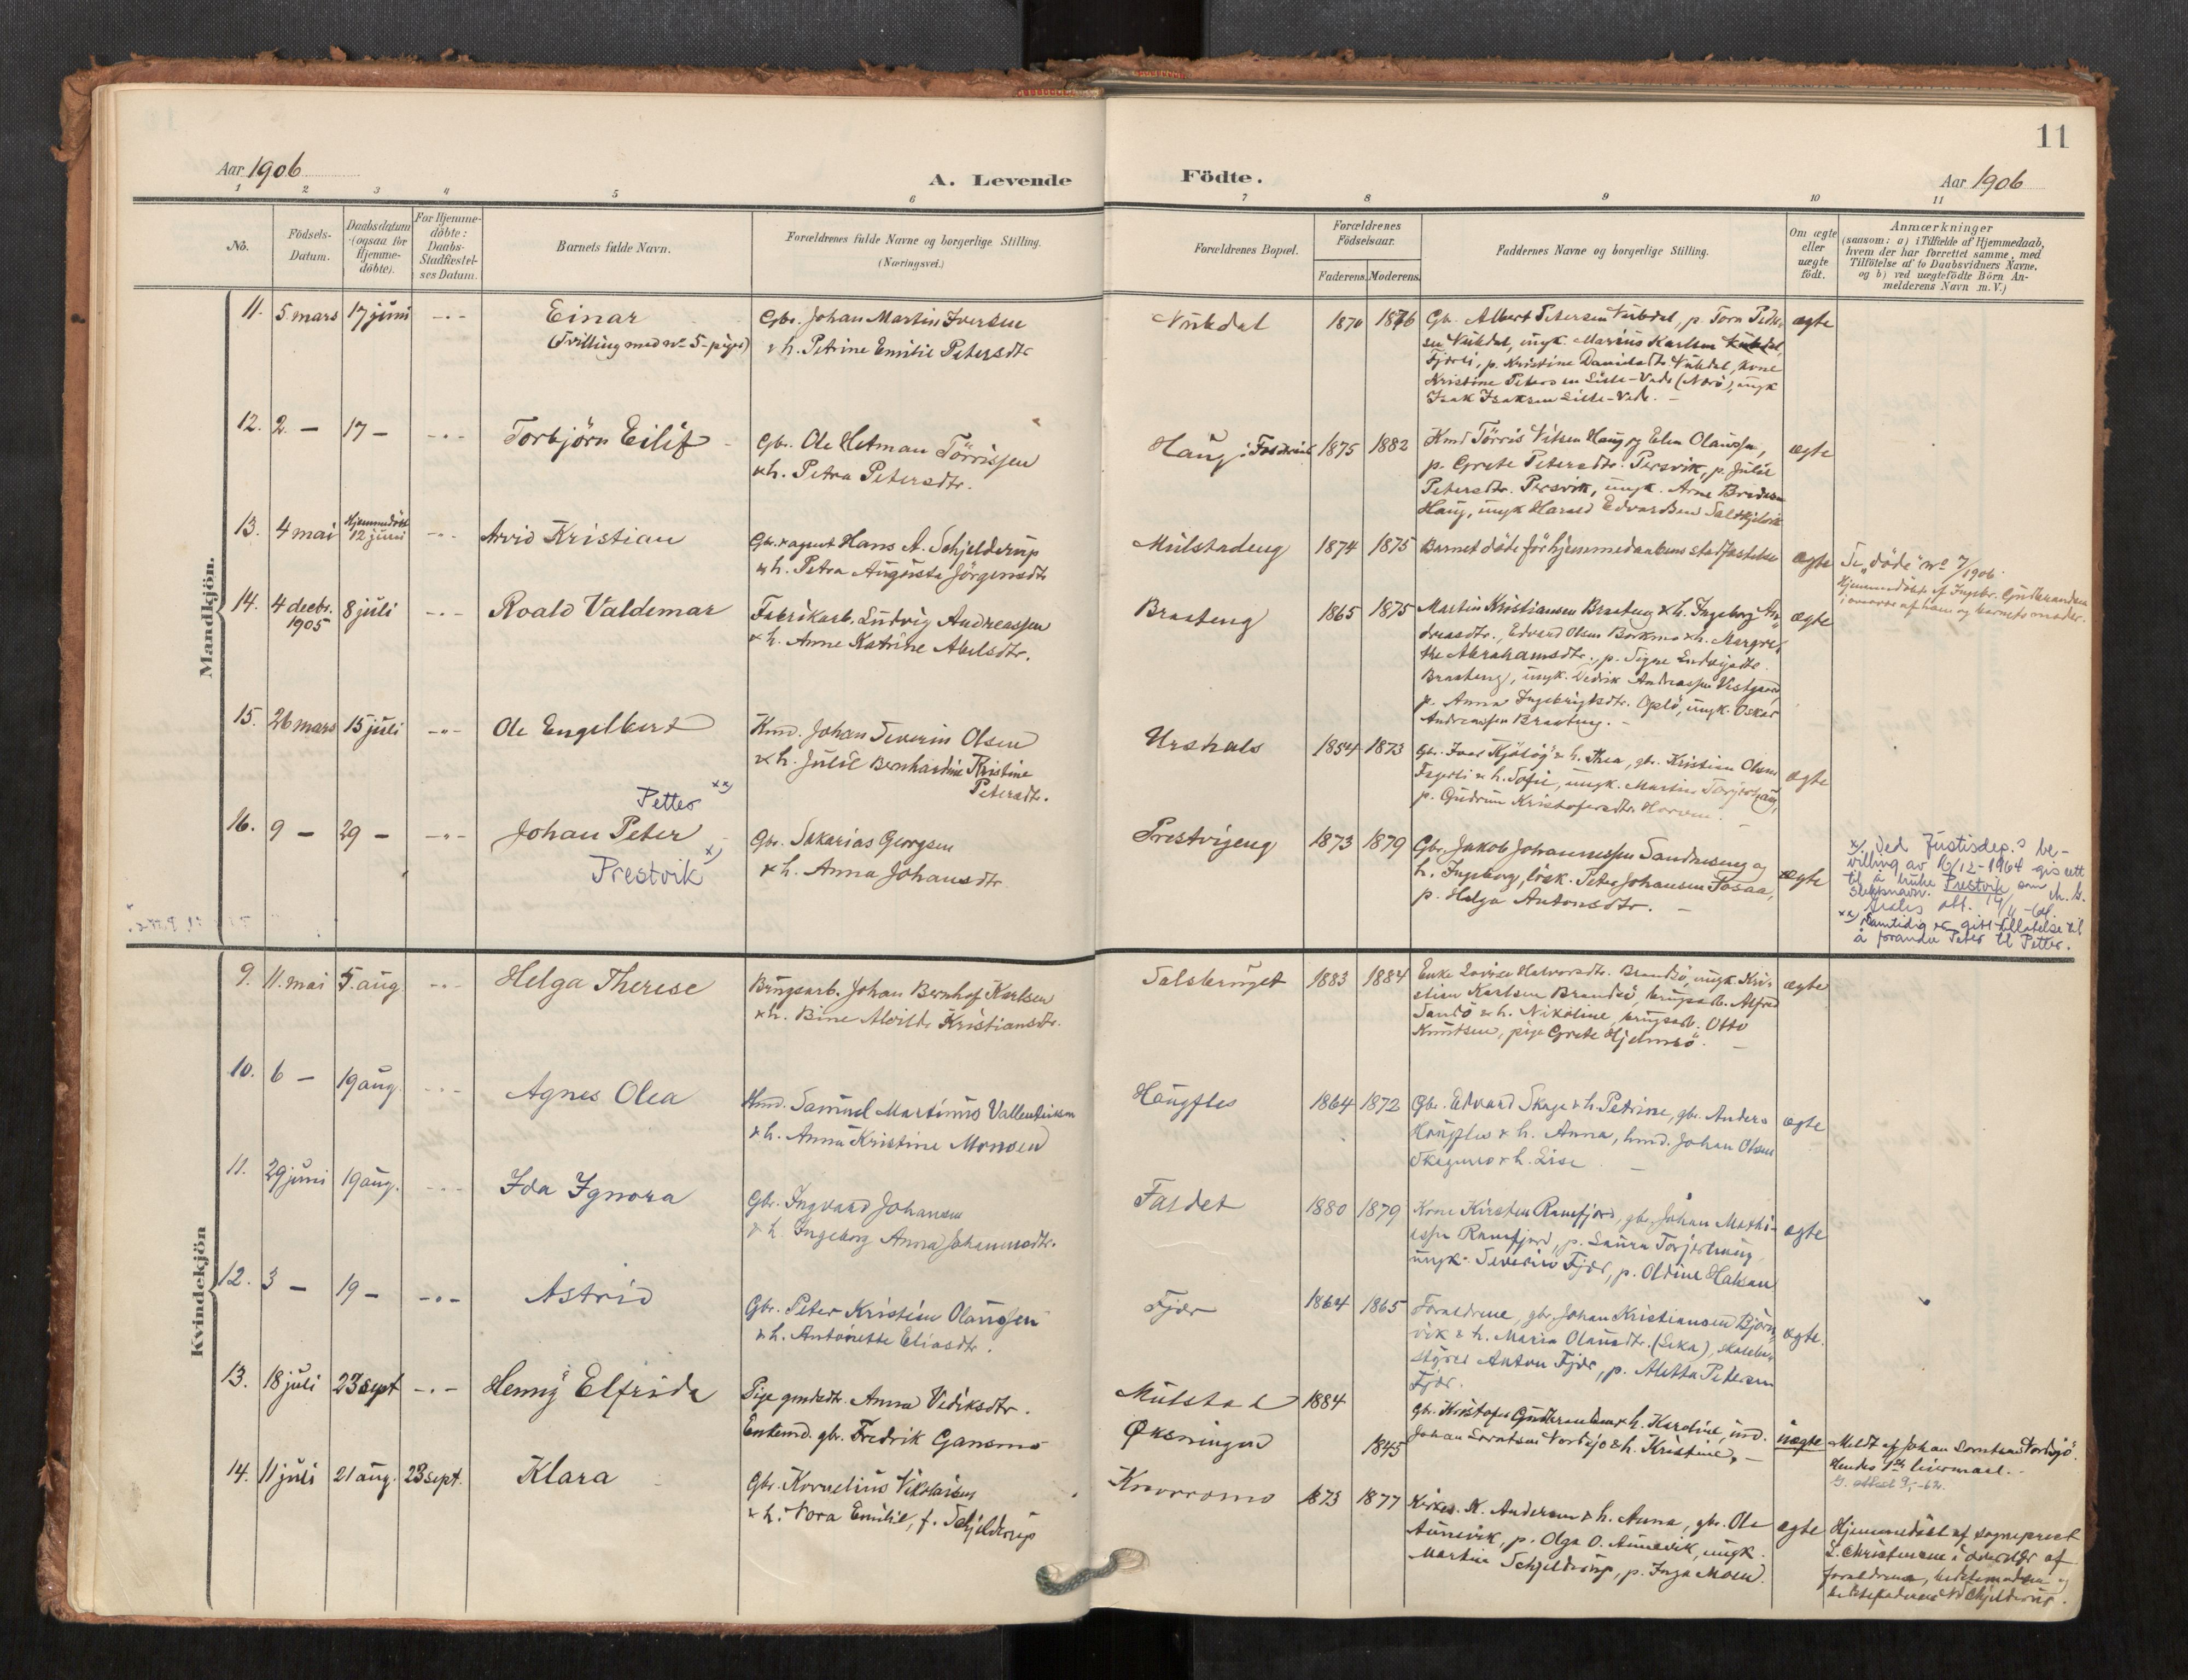 11
Aar 1906
A. Levende Födte.
Aar 1906
1 2 3 4 5 6 7 8 9 10 11
No.
Födsels-
Datum.
Daabsdatum
(ogsaa for
Hjemme-
döbte).
For Hjemme-
döbte:
Daabs-
Stadfæstel-
ses Datum.
Barnets fulde Navn.
Forældrenes fulde Navne og borgerlige Stilling.
(Næringsvei.)
Forældrenes Bopæl.
Forældrenes
Födselsaar.
Faderens. Moderens.
Faddernes Navne og borgerlige Stilling.
Om ægte
eller
uægte
födt.
Anmærkninger
(saasom: a) i Tilfælde af Hjemmedaab,
hvem der har forrettet samme, med
Tilföielse af to Daabsvidners Navne,
og b) ved uægtefödte Börn An-
melderens Navn m. V.)
Mandkjön.
11. 5 mars 17 juni -"- Einar
(Tvilling med no 5 - piger)
Gbr. Johan Martin Iversen
& h. Petrine Emilie Petersdtr
1870 1876
Gbr. Albert Petersen
Marius Karlsen
Fjærli, p. Kristine
Kristine Petersen Lille-Vede (Nærö), ungk
Isak Isaksen Lille-Vede. -
ægte
12. 2 - 17 - -"- Torbjörn Eilif
Gbr. Ole Hetman Törrissen
& h. Petra Petersdtr.
Haug i 1875 1882
Kmd Törris Haug og Elen
p. Grete Petersdtr. Persvik, p. Julie
Petersdtr. Persvik, ungk. Arne
Haug, ungk Harald Edvardsen
ægte
13. 4 mai Hjemmedöbt
12 juni -"- Arvid Kristian
Gbr. & agent Hans A. Schjelderup
& h. Petra Augusta Jörgensdtr
Mulstadeng 1874 1875
Barnet döde för hjemmedaabens stadfæstelse
ægte
Se „döde" no 7/1906.
Hjemmedöbt af Ingebr. Gudbrandsen
i nærvær af ham og barnets moder.
14. 4 decbr.
1905 8 juli -"- Roald Valdemar
Fabrikarb. Ludvig Andreassen
& h. Anne Katrine Abelsdtr.
Braateng 1865 1875
Martin Kristiansen Braateng & h. Ingeborg An-
dreasdtr., Edvard Olsen & h. Margre-
the Abrahamsdtr., p. Signe Ludvigsdtr.
Braateng, ungk. Andreassen
p. Anna Ingebrigtsdtr. Oplö, ungk. Oskar
Andreassen Braateng. -
ægte
15. 26 mars 15 juli -"- Ole Engelbert
Kmd. Johan Severin Olsen
& h. Julie Bernhardine Kristine
Petersdtr.
Urstals 1854 1873
Gbr. Iver & h. Thea, gbr. Kristian Olsen
Fagerli & h. Sofie, ungk. Martin
p. Gudrun Kristofersdtr.
ægte
16. 9 - 29 - -"- Petter xx)
Johan Peter
Prestvik x)
Gbr. Sakarias Georgsen
& h. Anna Johansdtr
Prestvigeng 1873 1879
Gbr. Jakob Johannessen og
h. Ingeborg, Peter Johansen Fosaa,
p. Helga Antonsdtr. -
ægte
x) Ved Justisdep.s be-
villing av 16/12-1964 gis rett
til å bruke Prestvik som
slektsnavn.
xx) Samtidig er gitt tillatelse til
å forandre Peter til Petter.
Kvindekjön
9. 11. mai 5. aug -"- Helga Therese
Brugsarb. Johan Bernhof Karlsen
& h. Bine Alvilde Kristiansdtr.
Salsbruget 1883 1884
Enke Lovise Halvorsdtr. ungk. Kri-
stian Karlsen brugsarb. Alfred
Sandö & h. Nikoline, brugsarb. Otto
Knutsen, pige Grete
ægte
10. 6 - 19 aug. -"- Agnes Olea
Kmd. Samuel Martinus Vallentinsen
& h. Anna Kristine Monsen
Haugfles 1864 1872
Gbr. Edvard Skage & h. Petrine, gbr. Anders
Haugfles & h. Anna, kmd. Johan Olsen
& h. Lise -
ægte
11. 29 juni 19 aug. -"- Ida Ignora
Gbr. Ingvard Johansen
& h. Ingeborg Anna Johannesdtr.
Fardet 1880 1879
Kone Kirsten Ramfjord, gbr. Johan Mathi-
assen Ramfjord, p. Laura
ungk. Severin Fjær, p. Oldine
ægte
12. 3 - 19 - -"- Astrid
Gbr. Peter Kristian Olaussen
& h. Antonette Eliasdtr.
Fjær 1864 1865
Forældrene, gbr. Johan Kristiansen Björn-
vik & h. Maria Olausdtr. (Leka),
Anton Fjær, p. Aletta Petersen
Fjær.
ægte.
13. 18 juli 23 sept -"- Henny Elfrida
Pige gmdsdtr. Anna Vediksdtr.
Enkemd. gbr. Fredrik Gansmo
Mulstad 1884
Øksningen 1845
Gbr. Kristofer Gudbrandsen & h. Karoline, ind.
Johan & h. Kristine. -
uægte
Meldt af Johan
Hendes 1ste leiermaal.
14. 11 juli 21 aug. 23 sept. Klara
Gbr. Kornelius Nikolaisen
& h. Nora Emilie, f. Schjelderup
1873 1877
Kirkes. K. Andersen & h. Anna, gbr. Ole
Aunevik, p. Olga O. Aunevik, ungk.
Martin Schjelderup, p. Inga Moen.
ægte
Hjemmedöbt af sogneprest
L. Christensen i overvær af
forældrene, bedstemoderen og
bedstefaderen Schjelderup.